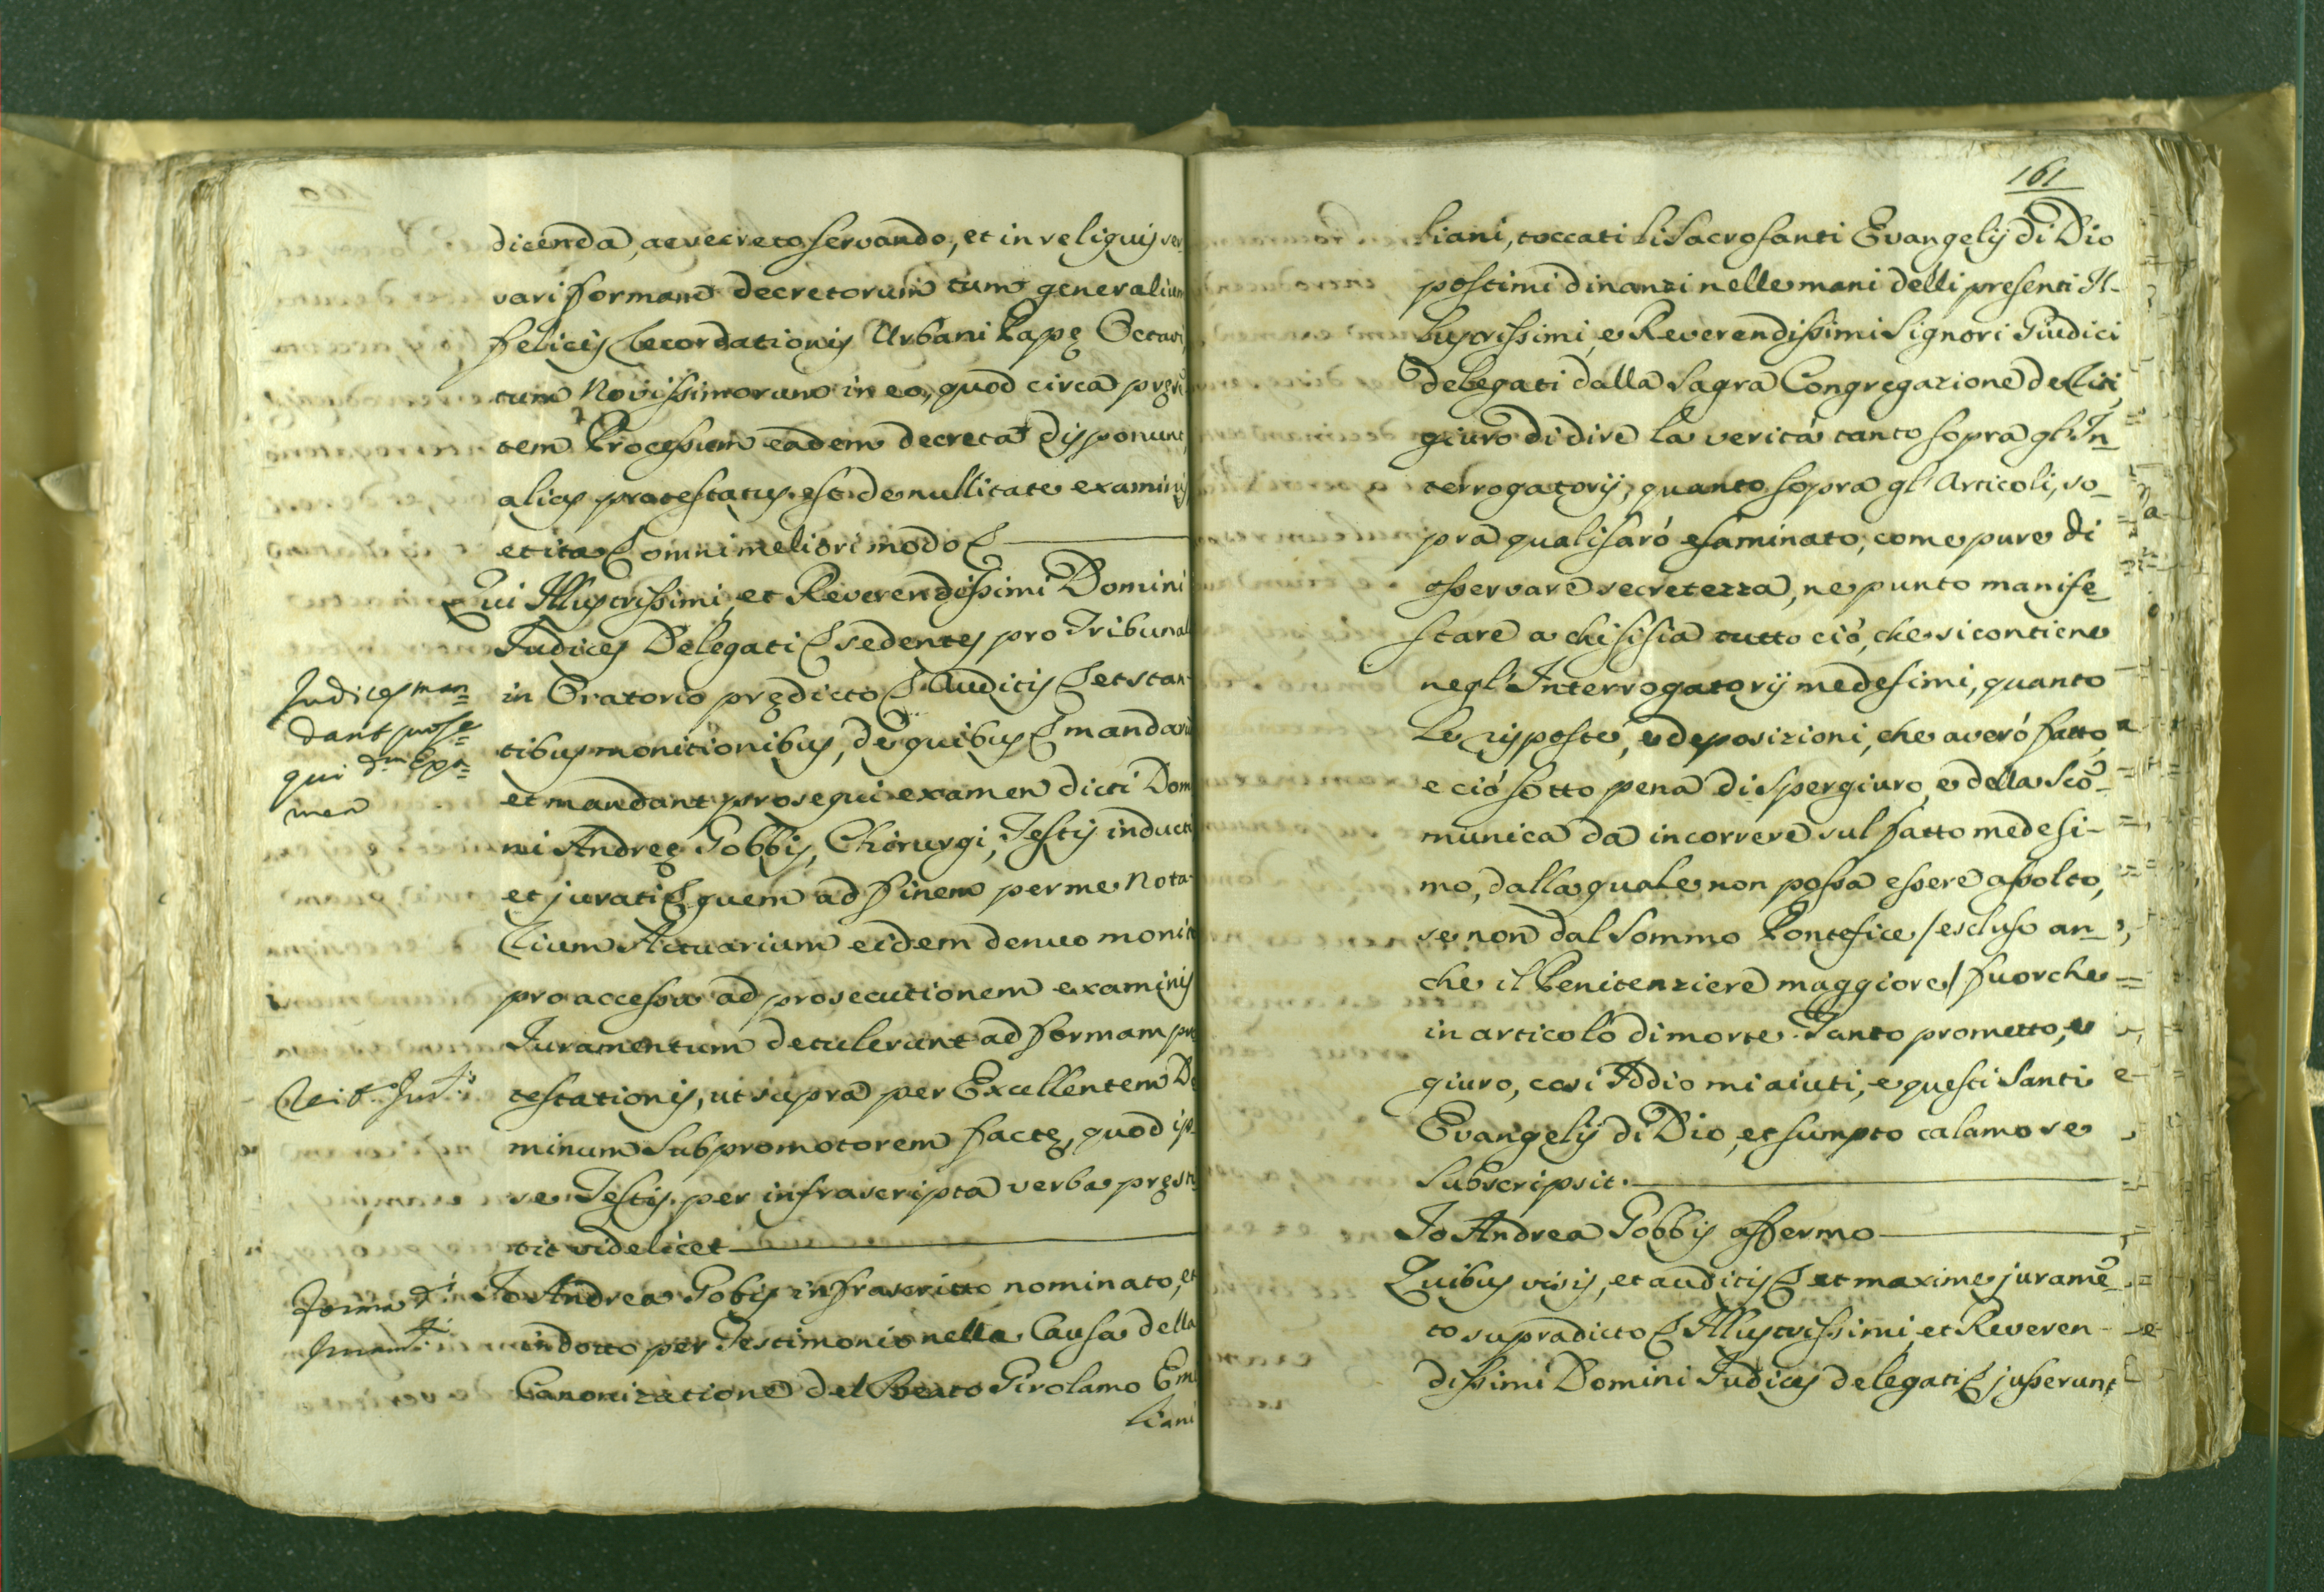 dicenda, ac vecreto servando, et in reliquis ser-
vari formam decretorum tum generalium
felicis recordationis Urbani Papę Octavi,
tum Novissimorum in eo, quod circa pręsen
tem Processum eadem decreta disponunt,
alias protestatus est de nullitate examinis
et ita & omni meliori modo &
Qui Illustrissimi, et Reverendissimi Domini
Judices Delegati & sedentes pro Tribunal
in Oratorio prędicto & Auditis & et stan-
tibus monitionibus, de quibus & mandarunt
et mandant prosequi examen dicti Dom
ni Andreę Gobbis, Chirurgi, Testis inducti
et jurati & quem ad finem per me Nota-
rium Actuarium eidem denuo moniti
pro accessu ad prosecutionem examinis
Juramentum detulerunt ad formam pro
testationis, ut supra per Excellentem Do
minum Subpromotorem factę, quod ip-
se Testis per infrascripta verba pręsti
tit videlicet
Io Andrea Gobis infrascritto nominato, et
indotto per Testimonio nella Causa della
Canonizatione del Beato Girolamo Emi
liani
Judices man=
dant prose=
qui dm Exa=
men
Reit. Jur.
Forma d.
Juram.ti
161
liani, toccati li Sacrosanti Evangelij di Dio
postimi dinanzi nelle mani delli presenti Il-
lustrissimi, e Reverendissimi Signori Giudici
delegati dalla Sagra Congregazione de Riti,
giuro di dire la verità tanto sopra gl'In_
terrogatorij, quanto sopra gl'Articoli, so_
pra quali sarò esaminato, come pure di
osservare secretezza, ne punto manife_
stare a chi si sia tutto ciò, che si contiene
negl'Interrogatorij medesimi, quanto
le risposte, e deposizioni, che averò fatto,
e ciò sotto pena di spergiuro, e della Scō_
munica da incorrere sul fatto medesi-
mo, dalla quale non possa essere assolto,
se non dal Sommo Pontefice /escluso an_
che il Penitenziere maggiore/ fuorche
in articolo di morte. Tanto prometto, e
giuro, così Iddio mi aiuti, e questi Santi
Evangelij di Dio, et sumpto calamo se
Subscripsit.
Io Andrea Gobbis affermo
Quibus visis, et auditis & et maxime juramē_
to supradicto & Illustrissimi, et Reveren-
dissimi Domini Judices delegati & jusserunt